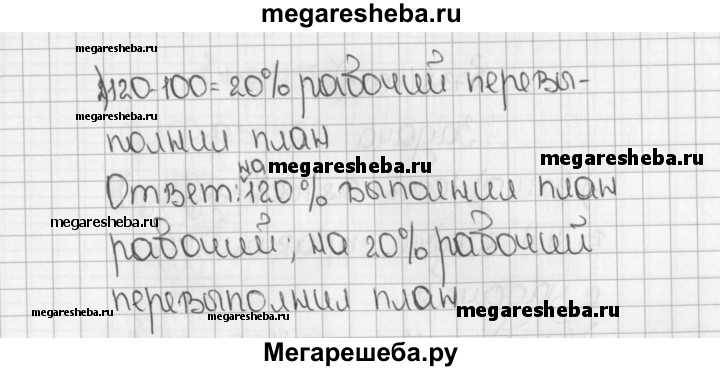 megaresheba.ru
megaresheba.ru
120-100=20% рабочий перевы-
megaresheba.ru
полнил план
на megaresheba.ru megaresheba.ru
Ответ: 120% выполнил план
megaresheba.ru
рабочий; на 20% рабочий
перевыполнил план
megaresheba.ru megaresheba.ru megaresheba.ru
Мегарешеба.ру